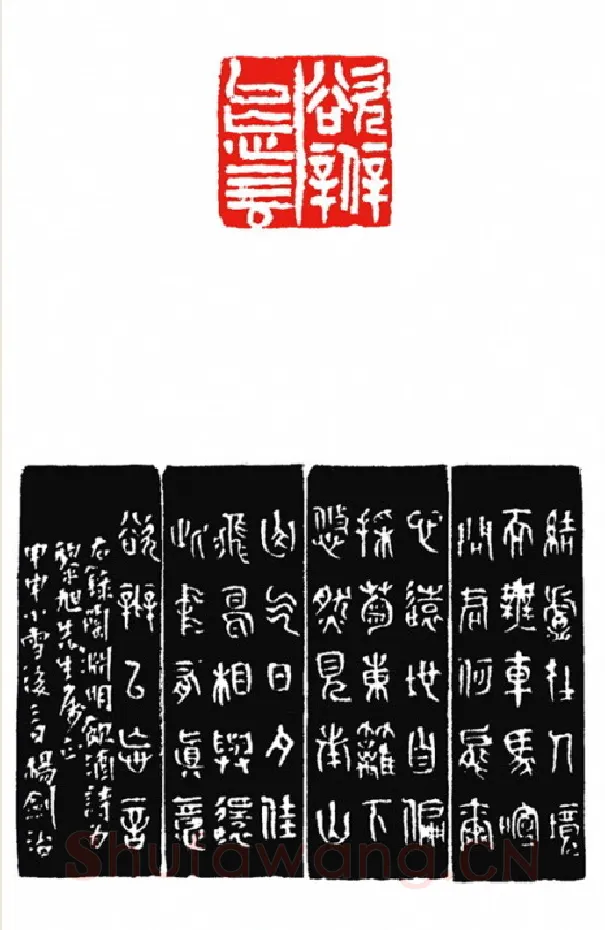 欲辨
已忘言
結廬在人境
而無車馬喧
問君何能爾
心遠地自偏
採菊東籬下
悠然見南山
山气日夕佳
飛鳥相與還
此中有真意
欲辨已忘言
右錄陶淵明飲酒詩為
旭先生屬正
甲申小雪後三日楊劍治
Shufawang.CN